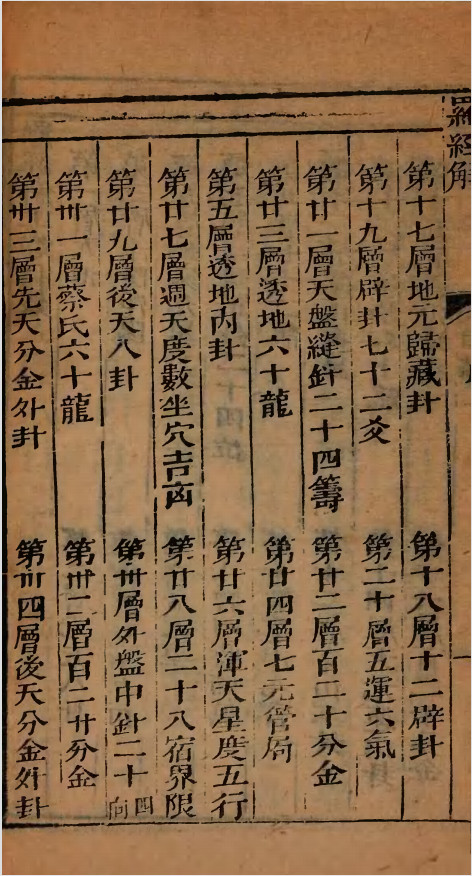 羅經解
第十七層地元歸藏卦
第十八層十二辟卦
第十九層辟卦七十二爻
第二十層五運六氣
第廿一層天盤縫針二十四籌
第廿二層百二十分金
第廿三層透地六十龍
第廿四層七元管局
第五層透地内卦
第廿六層渾天星度五行
第廿七層週天度數坐穴吉凶
第廿八層二十八宿界限
第廿九層後天八卦
第卅層外盤中針二十四向
第卅一層蔡氏六十龍
第卅二層百二廿分金
第卅三層先天分金外卦
第卅四層後天分金外卦